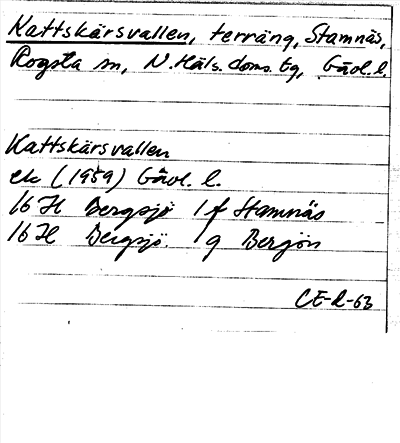 Kattskärsvallen, terräng, Stamnäs,
Rogsta sn, N. Häls. doms. tg, Gävl. l.
Kattskärsvallen
ek (1959) Gävl. l.
16 H Bergsjö 1 f Stamnäs
16 H Bergsjö 1 g Bergön
CE-R-63